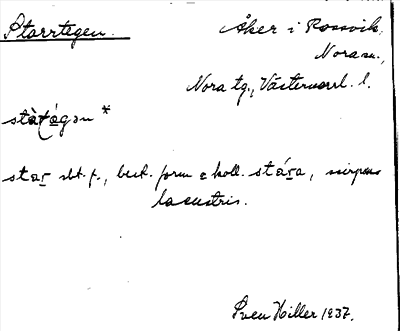 Starrtegen.
Åker i Rossvik,
Nora sn.,
Nora tg., Västernorrl. l.
stàrtə̀gən *
star sbt. f., best. form o koll. stára, scirpus
lacustris.
Sven Hiller 1937.